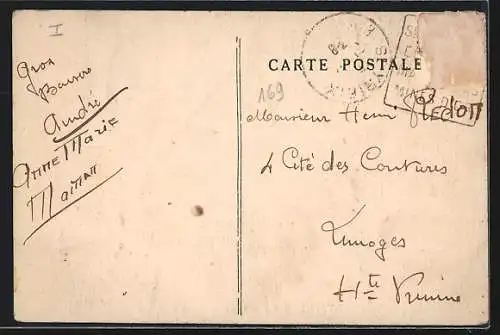 I
Gros
Baisers
André
Anne Marie
Maman
CARTE POSTALE
169
Monsieur Henri
4 Cité des Coutures
Limoges
Hte Vienne